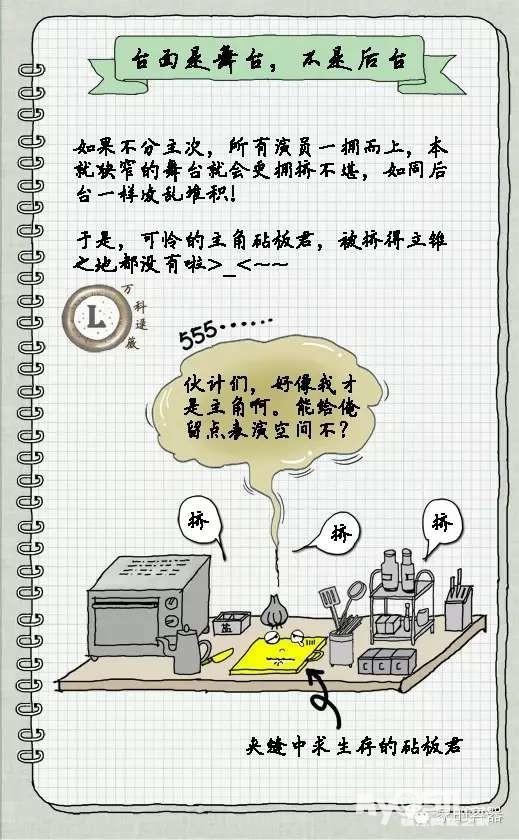 台面是舞台，不是后台
如果不分主次，所有演员一拥而上，本
就狭窄的舞台就会更拥挤不堪，如同后
台一样凌乱堆积!
于是，可怜的主角砧板君，被挤得立锥
之地都没有啦>_<~~
L
万科逯薇
555······
伙计们，好像我才
是主角啊。能给俺
留点表演空间不?
挤
挤
挤
盐
C C C
夹缝中求生存的砧板君